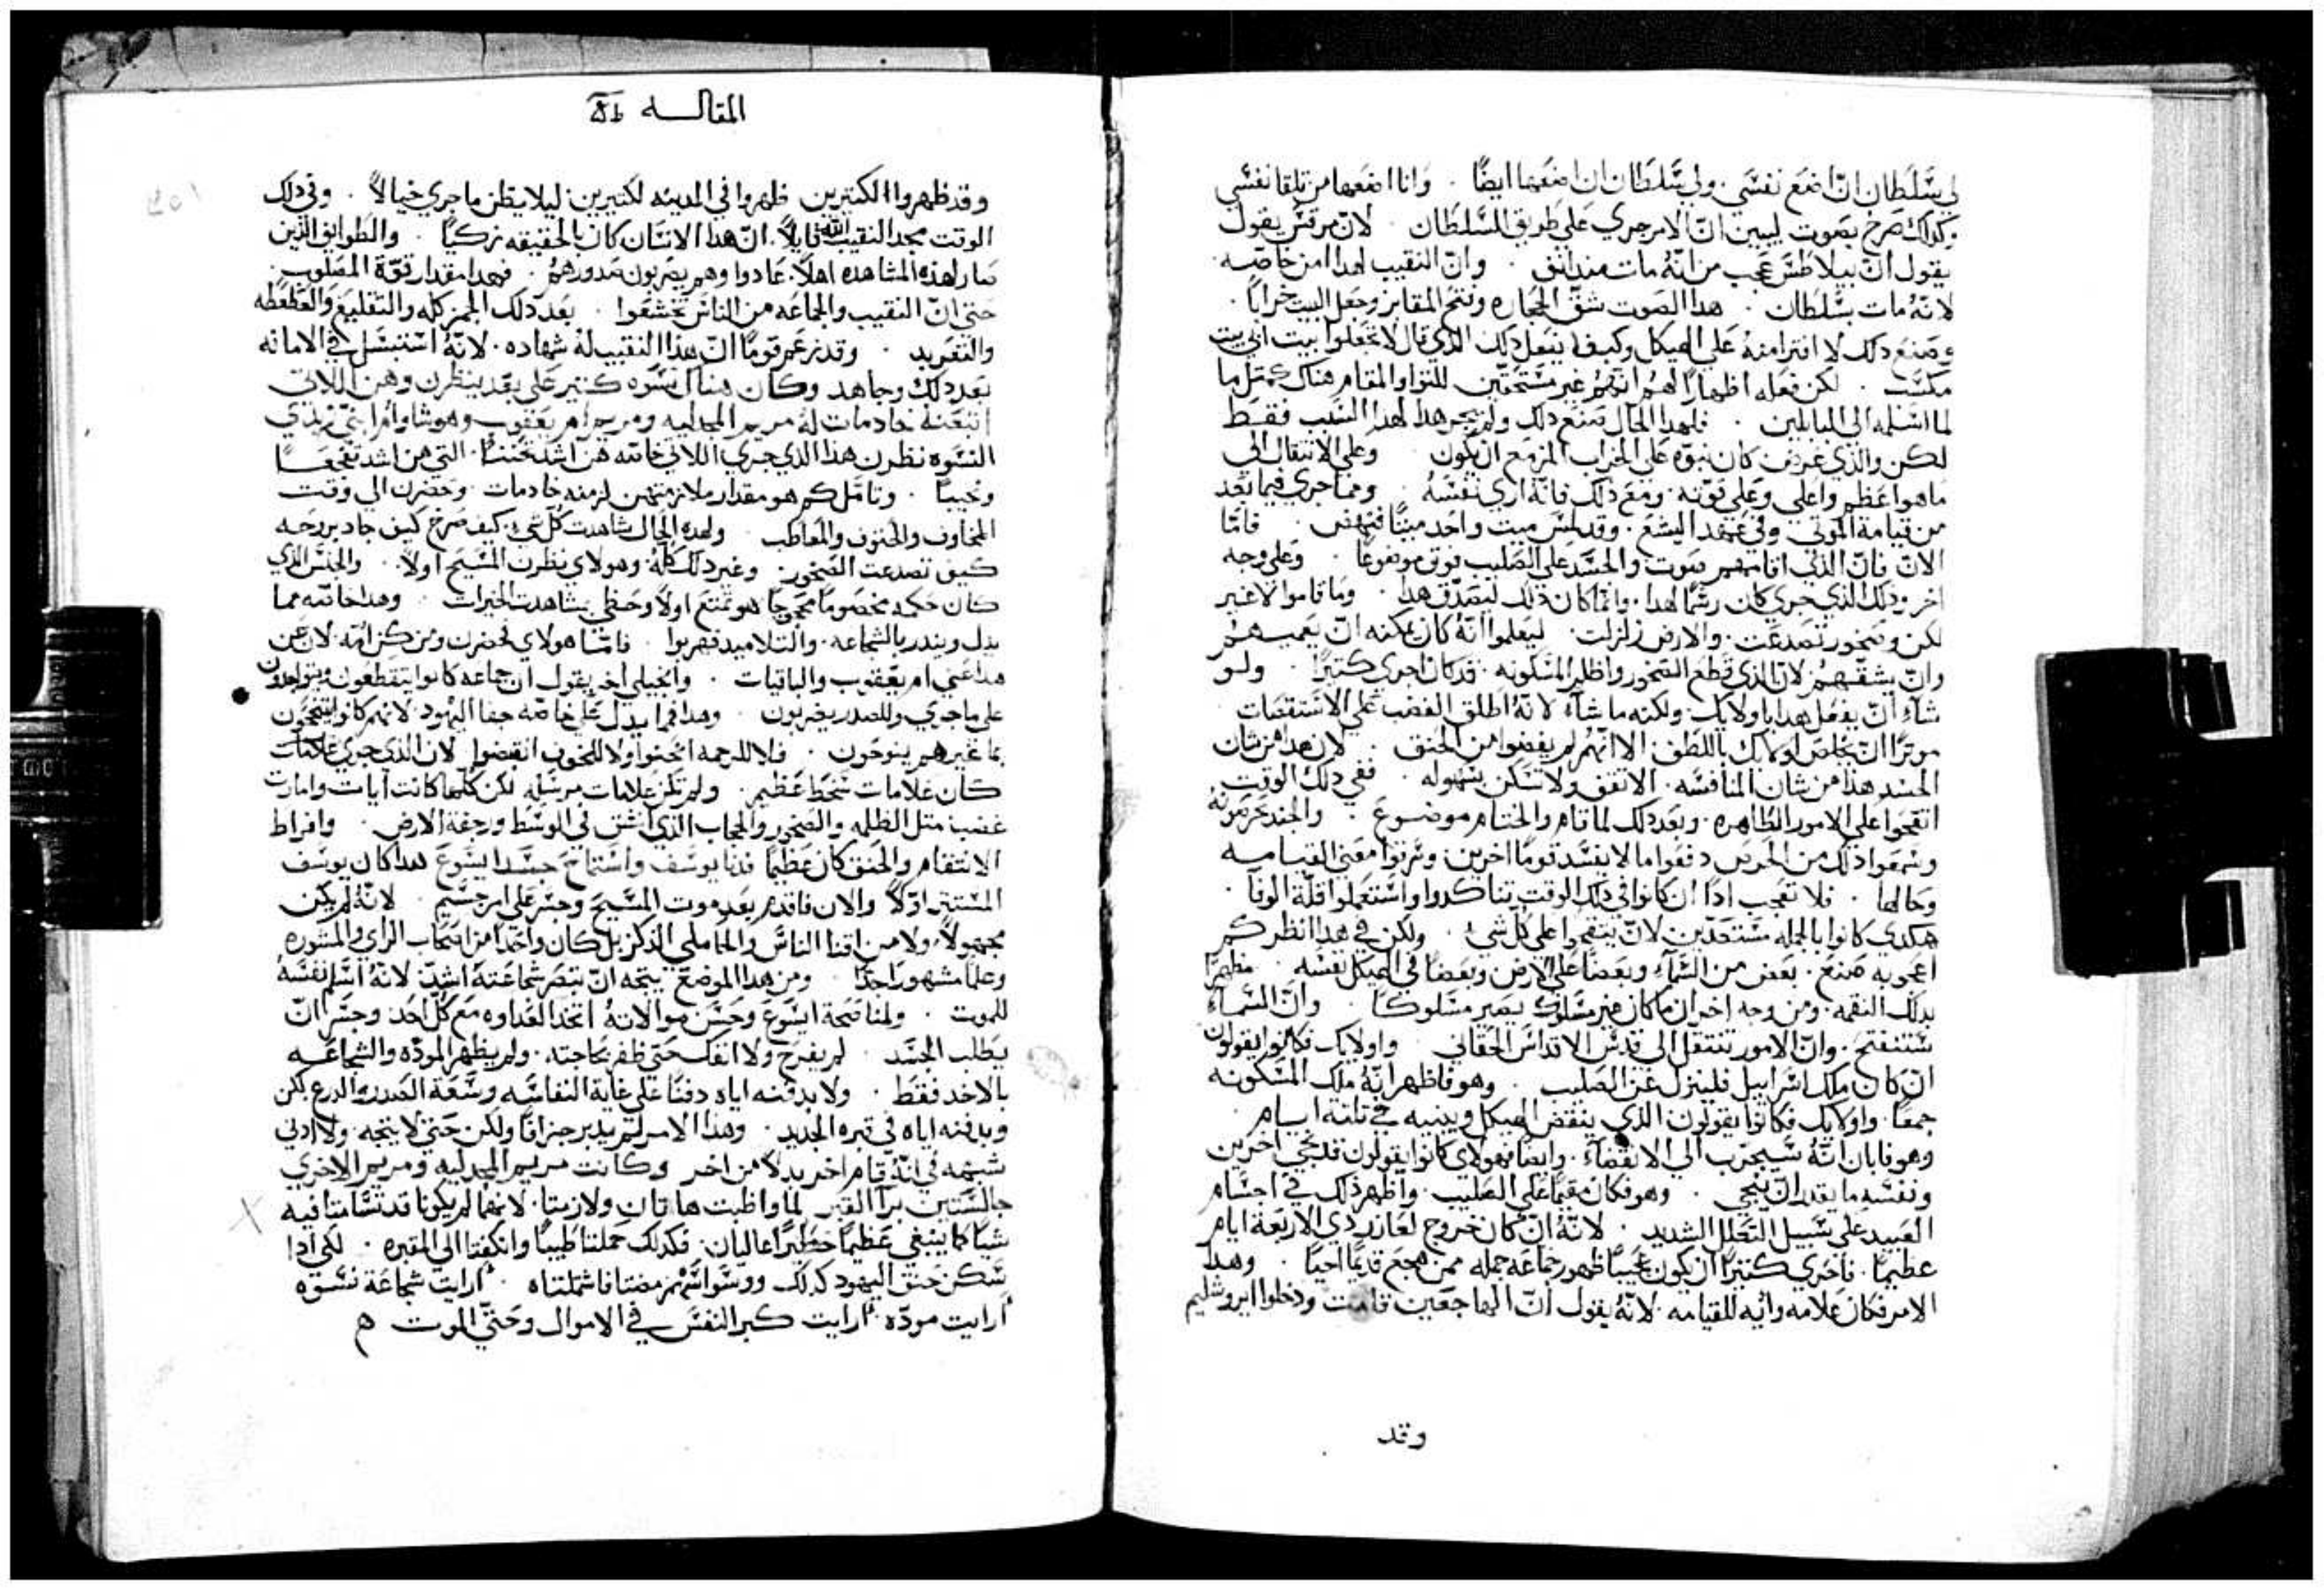 لي سلطان انّ اضع نفسي ولي سلطان ان اضعها ايضًا . وانا اضعها من تلقا نفسي
وكدلك صرخ بصوت ليبين انّ الامر جري علي طريق السلطان . لانّ مرقس يقول
يقول انّ بيلاطس عجب من انّه مات مند انف . وانّ النقيب لهدا امن خاصّه
لانّه مات بسلطان . هدا الصوت شقّ الحجاره وفتح المقابر وجعل البيت خرابًا .
وصنع دلك لا افترا منهُ علي الهيكل وكيف يفعل دلك الدي قال لا تجعلوا بيت ابي بيت
مكسب . لكن فعله اظهارًا لهم انّهم غير مستحقّين للثوا والمقام هناك كمتل ما
لما اسلمه الي البابلين . فلهدا الحال صنع دلك ولم يجر هدا لهدا السبب فقط
لكن والدي غرض كان نبوّه علي الخراب المزمع ان يكون وعلي الانتقال الي
ماهو اعظم واعلي وعلي قوّته . ومع دلك فانّه اري نفسهُ . ومما جري فيما بعد
من قيامة الموتي وفي عهد اليشع . وقد لمس ميت واحد ميتًا فنهض . فامّا
الانّ فانّ الدي اقامهم صوت والجسد علي الصليب فوق موضوعًا . وعلي وجه
اخر ودلك الدي جري كان رسمًا لهدا . وانّما كان دلك ليصدّق هدا . وما قاموا لا غير
لكن وصخور تصدعت . والارض زلزلت . ليعلموا انّه كان يمكنه انّ يعميهم
وانّ يشقّهم لانّ الدي قطع الصخور واظلم المسكونه . قد كان احري كتيرًا . ولو
شاء انّ يفعل هدا باولايك . ولكنه ما شاء لانّهُ اطلق الغضب علي الاستقصات
موترًا انّ يخلص اولايك باللطف الا انّهم لم يفضوا من الحنق . لان هدا من شان
الحسد هدا من شان المنافسه . الا تقف ولا تسكن بسهوله . ففي دلك الوقت
اتقحوا علي الامور الظاهره . وبعد دلك لما قام والختام موضوع . والجند تحرسونهُ
وسمعوا دلك من الحرس دفعوا مالا يفسد قومًا اخرين وسرقوا معني القيامه
وحالها . فلا تعجب ادًا ان كانوا في دلك الوقت تناكدوا واستعملوا قلّة الوفآ .
هكدي كانوا بالجمله مستعدّين لانّ يتقحوا علي كل شي . ولكن في هدا انظر كم
اعجوبه صنع . بعض من السّماء وبعضًا علي الارض وبعضًا في الهيكل نفسه . مظهرًا
بدلك النقمه . ومن وجه اخر ان ما كان غير مسلوك يصير مسلوكًا . وانّ السّماء
ستنفتح . وانّ الامور تنتقل الي قدس الاقداس الحقّاني . واولايك فكانوا يقولون
ان كان ملك اسراييل فلينزل عن الصليب . وهو فاظهر انّهُ ملك المسكونه
جمعًا . واولايك فكانوا يقولون الدي ينقض الهيكل ويبنيه في تلتة ايام .
وهو فابان انّهُ سيخرب الي الانقضاء . وايضًا فهولاي كانوا يقولون قد نجّي اخرين
ونفسه ما يقدر انّ ينجّي . وهو فكان مقيمًا علي الصليب . واظهر دلك في اجسام
العبيد علي سبيل التعلل الشديد . لانّهُ انّ كان خروج لعازر دي الاربعة ايام
عظيمًا . فاحري كتيرًا ان يكون عجيبًا ظهور جماعه جمله ممن هجع قديمًا احيا . وهدا
الامر فكان علامه وايه للقيامه لانّهُ يقول انّ الهاجعين قامت ودخلوا ايروشليم
وقد
المقالـــه
وقد ظهروا الكتيرين ظهروا في المدينه لكتيرين ليلا يظن ما جري خيالاً . وفي دلك
الوقت مجد النقيب الله قايلاً . انّ هدا الانسان كان بالحقيقه زكيًا . والطوايف الدين
صار لهده المشاهده اهلاً . عادوا وهم يضربون صدورهم . فهدا مقدار قوّة المصلوب
حتي انّ النقيب والجماعه من الناس تخشعوا . بعد دلك الهمز كله والتقليع والعطعطه
والتغريد . وقد زعم قومًا انّ هدا النقيب له شهاده . لانّهُ استبسل في الامانه
بعد دلك وجاهد وكان هناك نسوه كتير علي بعد ينظرن وهن اللاتي
اتبعنه خادمات له مريم المجدليه ومريم ام يعقوب وهوشا وام ابني زبدي
النسوه نظرن هدا الدي جري اللاتي خاصّه هن اشد تحننًا . التي هن اشد تفجعًا
ونحيبًا . وتامّل كم هو مقدار ملازمتهن لزمنه خادمات . وحضرن الي وقت
المخاوف والحتوف والمعاطب ولهده الحال شاهدت كل شي . كيف صرخ كيف جاد بروحه
كيف تصدعت الصخور . وغير دلك كلّهُ وهولاي نظرن المسيح اولاً . والجنس الدي
كان حكمه مخصومًا محجوجًا هو تمتع اولاً وحظي بمشاهدت الخيرات . وهدا خاصّه مما
يدل ويندر بالشجاعه . والتلاميد فهربوا . فامّا هولاي فحضرن ومن كن امّه لان عن
هدا عني ام يعقوب والباقيات . وانجيلي اخر يقول ان جماعه كانوا يتقطعون ويتوجعون
علي ما جري وللصدر يضربون . وهدا فمما يدل علي خاصّه جفا اليهود لانّهم كانوا يتبجحون
بما غيرهم ينوحون . فلا للرحمه انحنوا ولا للخوف انقبضوا لان الدي جري علامات
كان علامات سخط عظيم . ولم تكن علامات مرسله لكن كلّها كانت آيات وامارات
غضب متل الظلمه والصخور والحجاب الدي انشق في الوسط ورجفة الارض . وافراط
الانتقام والحنق كان عظيمًا فدنا يوسف واستماح جسد ايسوع هدا كان يوسف
المستتر اوّلاً والان فاقدم بعد موت المسيح وجسر علي امر جسيم . لانّهُ لم يكن
مجهولاً . ولا من افنا الناس والخاملي الدكر بل كان واحدًا من اصحاب الراي والمشوره
وعلمًا مشهور اجدًا . ومن هدا الموضع يتجه انّ تبصر شجاعته اشدّ لانّهُ اسلم نفسهُ
للموت . ولمناصحة ايسوع وحسن موالاتهُ اتخد العداوه مع كل احد وجسر انّ
يطلب الجسد . لم يفرح ولا انفك حتي ظفر بحاجته . ولم يظهر المودّه والشجاعه
بالاخد فقط . ولا بدفنه اياه دفنًا علي غاية النفاسه وسعة الصدر والدرع لكن
وبدفنه اياه في قبره الجديد . وهدا الامر لم يدبر جزافًا ولكن حتي لا يتجه ولا ادني
شبهه في انّهُ قام اخر بدلاً من اخر وكانت مريم المجدليه ومريم الاخري
جالستين برآ القبر لما واظبت هاتان ولازمتا . لانهما لم يكونا قد تسامتا فيه
شيا كما ينبغي عظيمًا خطيرًا عاليان . فكدلك حملتا طيبًا وانكفتا الي المقبره . لكي ادا
سكن حنق اليهود كدلك ووسواسهم مضتا فاشتملتاه . ارايت شجاعة نسوه
ارايت مودّه . ارايت كبر النفس في الاموال وحتّي الموت ه